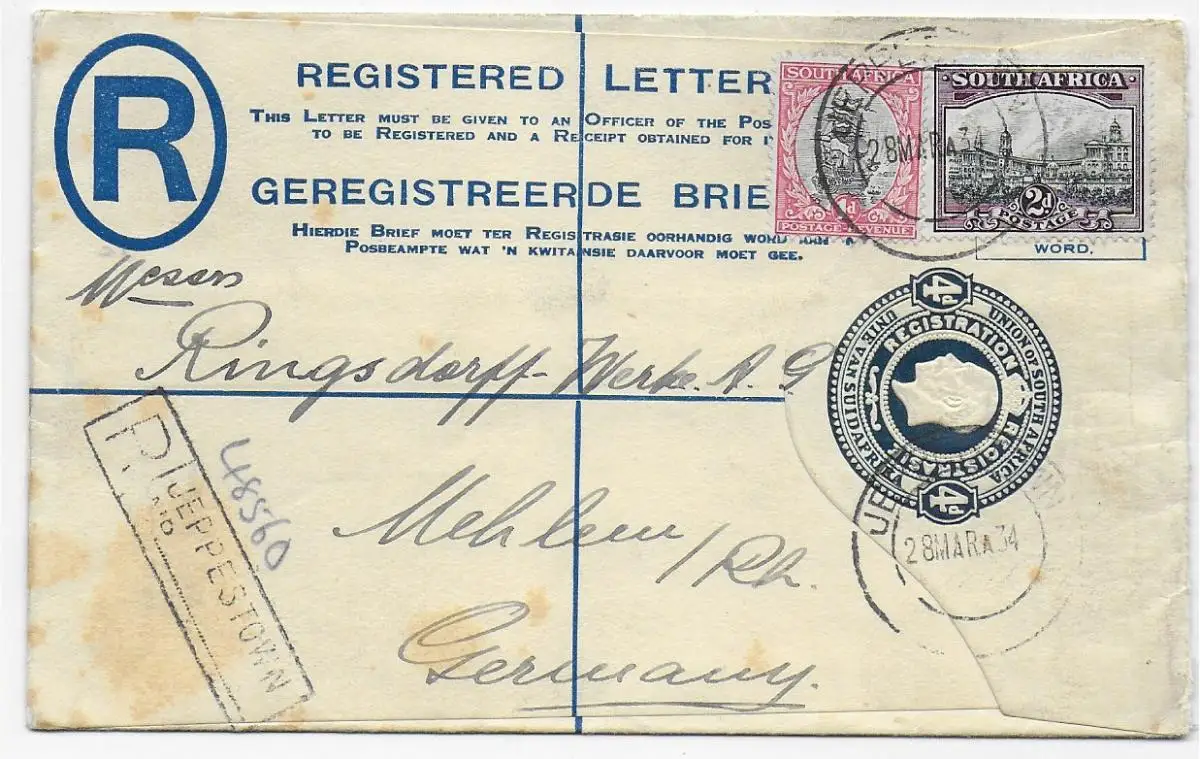 R
REGISTERED LETTER
THIS LETTER MUST BE GIVEN TO AN OFFICER OF THE POS
TO BE REGISTERED AND A RECEIPT OBTAINED FOR I
GEREGISTREERDE BRIE
HIERDIE BRIEF MOET TER REGISTRASIE OORHANDIG WORD AAN
POSBEAMPTE WAT 'N KWITANSIE DAARVOOR MOET GEE.
WORD.
SOUTH AFRICA
1d
POSTAGE REVENUE
SOUTH AFRICA
2d
POSTAGE
28MARA34
Messrs
Ringsdorff-Werke A. G
Mehlem/Rh.
Germany.
4d
UNION OF SOUTH AFRICA
UNIE VAN SUIDAFRIKA
REGISTRATION
REGISTRASIE
4d
28MARA34
R JEPPESTOWN
No
48560